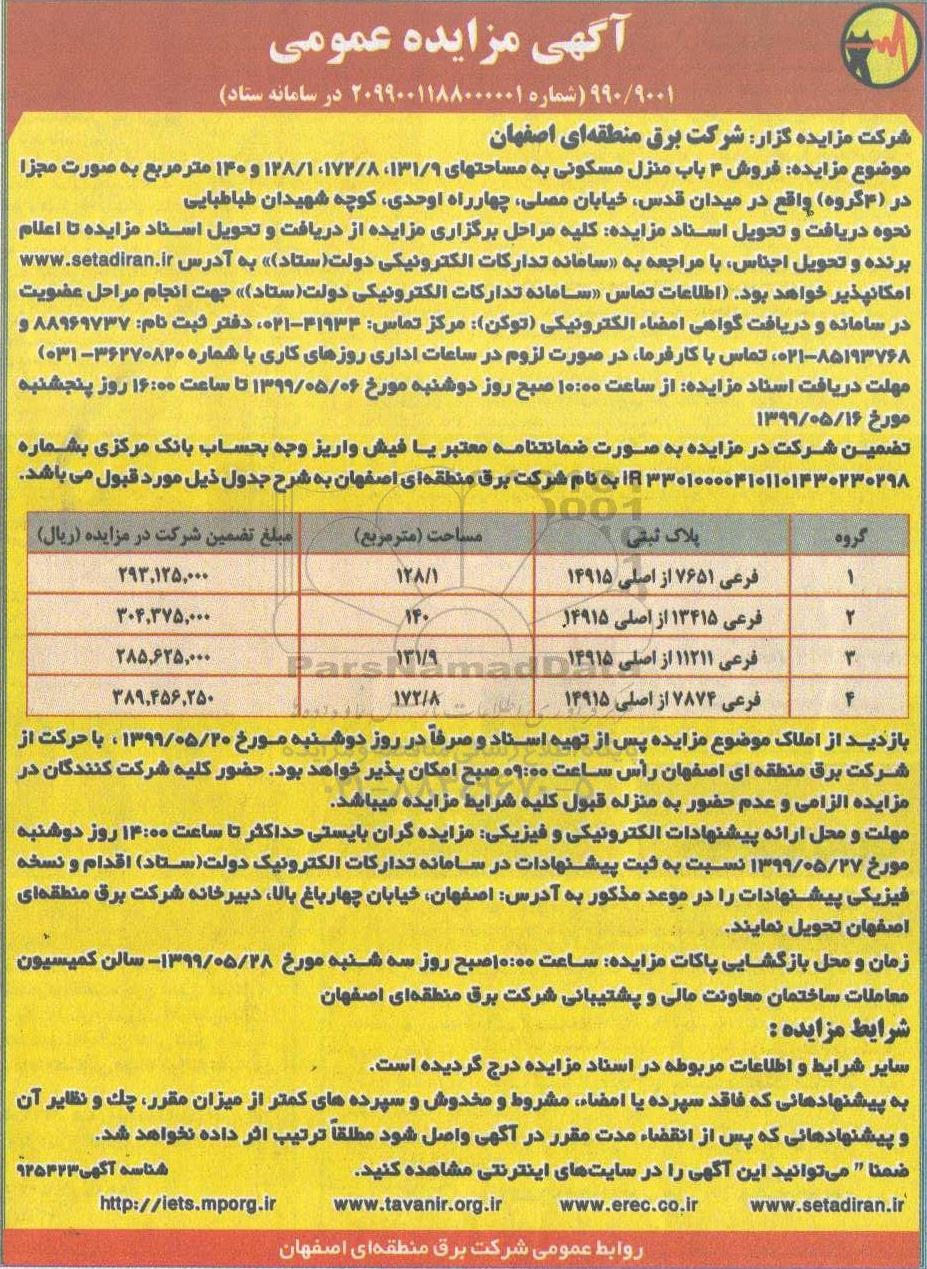 آگهی مزایده عمومی
۹۹۰/۹۰۰۱ (شماره ۲۰۹۹۰۰۱۱۸۸۰۰۰۰۰۱ در سامانه ستاد)
شرکت مزایده گزار: شرکت برق منطقه‌ای اصفهان
موضوع مزایده: فروش ۴ باب منزل مسکونی به مساحتهای ۱۳۱/۹، ۱۷۲/۸، ۱۲۸/۱ و ۱۴۰ مترمربع به صورت مجزا
در (۴گروه) واقع در میدان قدس، خیابان مصلی، چهارراه اوحدی، کوچه شهیدان طباطبایی
نحوه دریافت و تحویل اسناد مزایده: کلیه مراحل برگزاری مزایده از دریافت و تحویل اسناد مزایده تا اعلام
برنده و تحویل اجناس، با مراجعه به «سامانه تدارکات الکترونیکی دولت(ستاد)» به آدرس www.setadiran.ir
امکانپذیر خواهد بود. (اطلاعات تماس «سامانه تدارکات الکترونیکی دولت(ستاد)» جهت انجام مراحل عضویت
در سامانه و دریافت گواهی امضاء الکترونیکی (توکن): مرکز تماس: ۴۱۹۳۴-۰۲۱، دفتر ثبت نام: ۸۸۹۶۹۷۳۷ و
۸۵۱۹۳۷۶۸-۰۲۱، تماس با کارفرما، در صورت لزوم در ساعات اداری روزهای کاری با شماره ۳۶۲۷۰۸۲۰-۰۳۱)
مهلت دریافت اسناد مزایده: از ساعت ۱۰:۰۰ صبح روز دوشنبه مورخ ۱۳۹۹/۰۵/۰۶ تا ساعت ۱۶:۰۰ روز پنجشنبه
مورخ ۱۳۹۹/۰۵/۱۶
تضمین شرکت در مزایده به صورت ضمانتنامه معتبر یا فیش واریز وجه بحساب بانک مرکزی بشماره
IR ۳۳۰۱۰۰۰۰۴۱۰۱۱۰۱۴۳۰۲۳۰۲۹۸ به نام شرکت برق منطقه‌ای اصفهان به شرح جدول ذیل مورد قبول می باشد.
گروه پلاک ثبتی مساحت (مترمربع) مبلغ تضمین شرکت در مزایده (ریال)
۱ فرعی ۷۶۵۱ از اصلی ۱۴۹۱۵ ۱۲۸/۱ ۲۹۳,۱۲۵,۰۰۰
۲ فرعی ۱۳۴۱۵ از اصلی ۱۴۹۱۵ ۱۴۰ ۳۰۴,۳۷۵,۰۰۰
۳ فرعی ۱۱۲۱۱ از اصلی ۱۴۹۱۵ ۱۳۱/۹ ۲۸۵,۶۲۵,۰۰۰
۴ فرعی ۷۸۷۴ از اصلی ۱۴۹۱۵ ۱۷۲/۸ ۳۸۹,۴۵۶,۲۵۰
ParsNamadData
بازدید از املاک موضوع مزایده پس از تهیه اسناد و صرفاً در روز دوشنبه مورخ ۱۳۹۹/۰۵/۲۰ ، با حرکت از
شرکت برق منطقه ای اصفهان رأس ساعت ۰۹:۰۰ صبح امکان پذیر خواهد بود. حضور کلیه شرکت کنندگان در
مزایده الزامی و عدم حضور به منزله قبول کلیه شرایط مزایده میباشد.
مهلت و محل ارائه پیشنهادات الکترونیکی و فیزیکی: مزایده گران بایستی حداکثر تا ساعت ۱۴:۰۰ روز دوشنبه
مورخ ۱۳۹۹/۰۵/۲۷ نسبت به ثبت پیشنهادات در سامانه تدارکات الکترونیک دولت(ستاد) اقدام و نسخه
فیزیکی پیشنهادات را در موعد مذکور به آدرس: اصفهان، خیابان چهارباغ بالا، دبیرخانه شرکت برق منطقه‌ای
اصفهان تحویل نمایند.
زمان و محل بازگشایی پاکات مزایده: ساعت ۱۰:۰۰صبح روز سه شنبه مورخ ۱۳۹۹/۰۵/۲۸- سالن کمیسیون
معاملات ساختمان معاونت مالی و پشتیبانی شرکت برق منطقه‌ای اصفهان
شرایط مزایده :
سایر شرایط و اطلاعات مربوطه در اسناد مزایده درج گردیده است.
به پیشنهادهائی که فاقد سپرده یا امضاء، مشروط و مخدوش و سپرده های کمتر از میزان مقرر، چك و نظایر آن
و پیشنهادهائی که پس از انقضاء مدت مقرر در آگهی واصل شود مطلقاً ترتیب اثر داده نخواهد شد.
ضمنا " می‌توانید این آگهی را در سایت‌های اینترنتی مشاهده کنید. شناسه آگهی۹۲۵۴۲۳
www.setadiran.ir www.erec.co.ir www.tavanir.org.ir http://iets.mporg.ir
روابط عمومی شرکت برق منطقه‌ای اصفهان